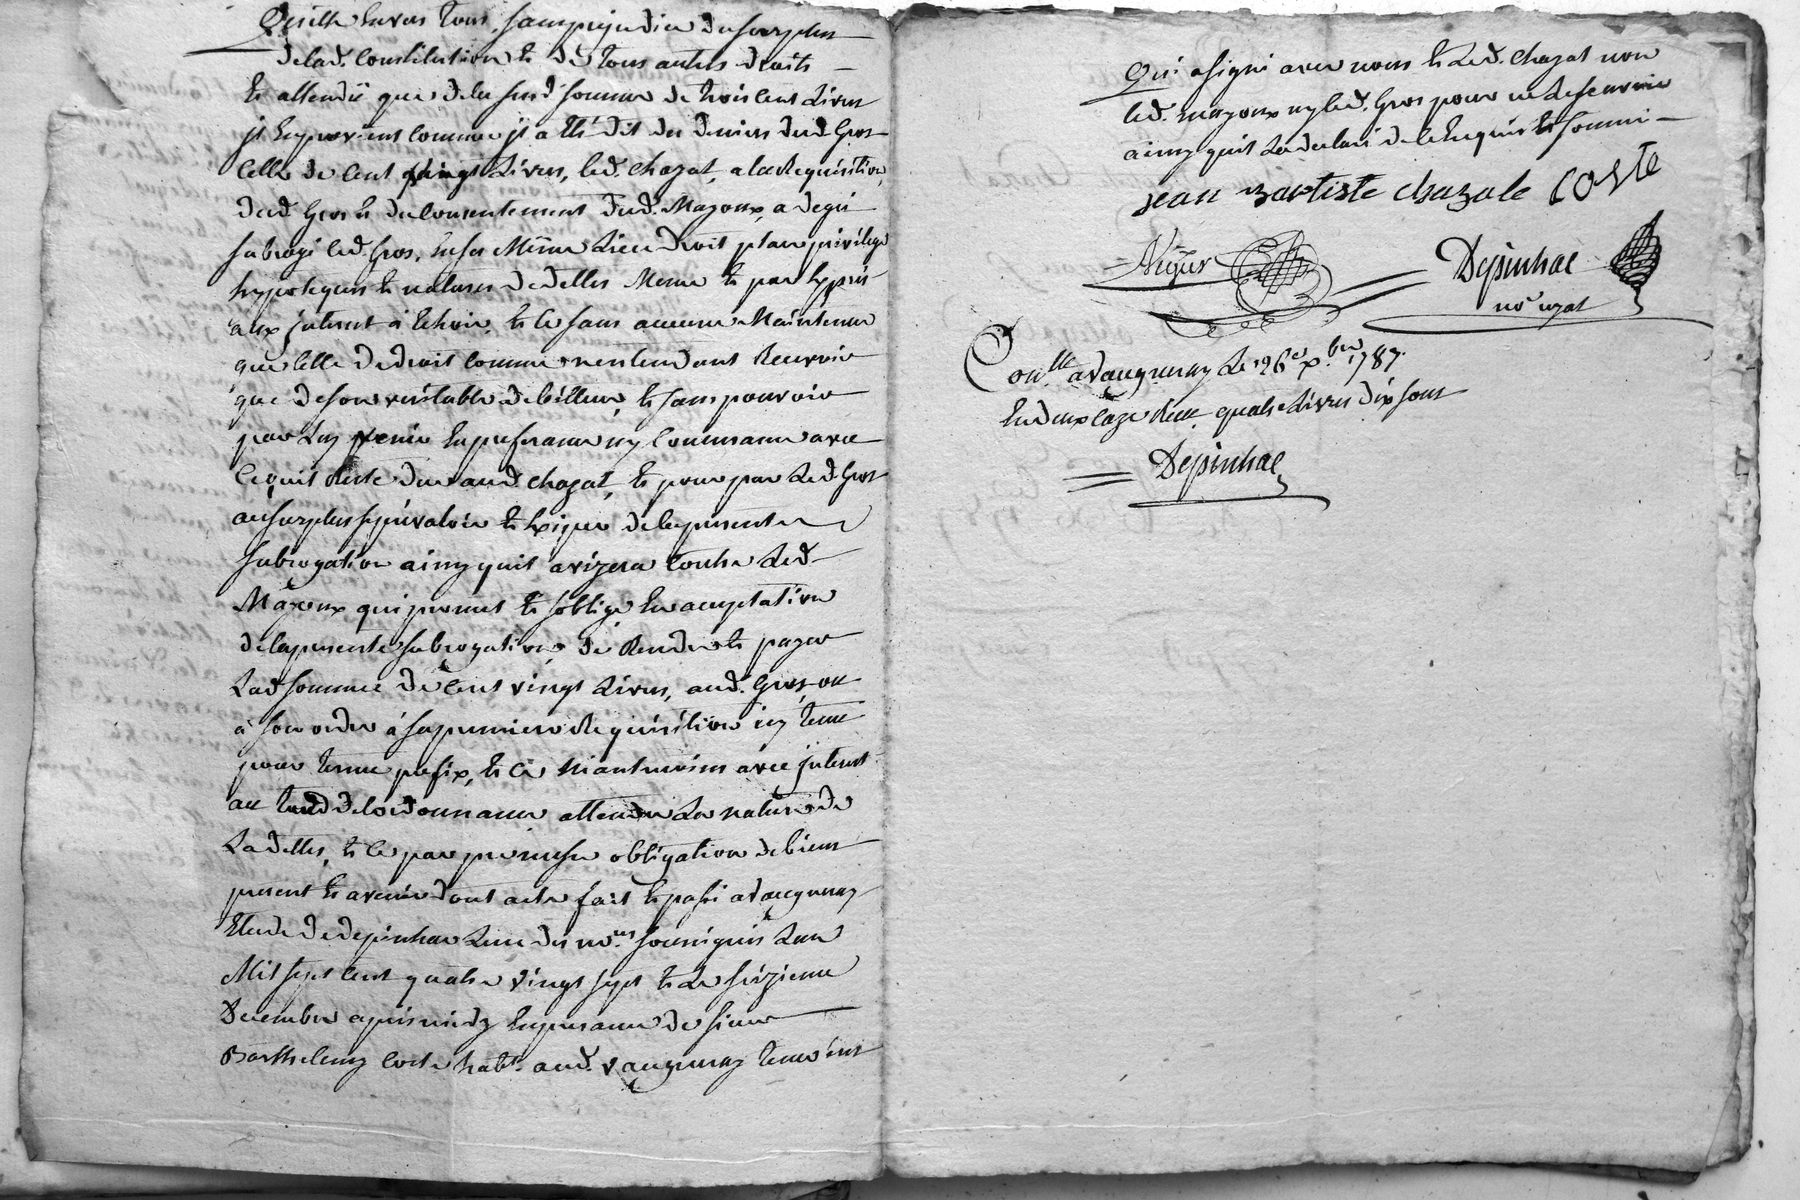 Quille Envers tous, sans prejudice du surplus
de lad. Constitution et de tous autres droits
Et attendu que de la susd. somme de trois cent Livres
jl En provient comme jl a été dit des deniers dud. Gros
celle de cent vingt Livres, led. Chazat, a la Requisition
dud. Gros et du consentement dud. Mazoux, a
subrogé led. Gros, En son Même Lieu droit place privilege
hypoteques et natures de dettes Meme et par Exprés
aux jnterest á Echoir, et ce sans aucune Maintenue
que Celle de droit comme nentendant Recevoir
que de son veritable debitteur, et sans pouvoir
par Luy venir En preferance ny Concurrance avec
Ce quil Reste du aud. Chazat, et pour par Led. Gros
au surplus se prevaloir et de la presente
subrogation ainsy quil avizera Contre Led.
Mazoux qui promet et soblige En acceptation
de la presente subrogation, de Rendre et payer
Lad. somme de Cent vingt Livres, aud. Gros, ou
á son ordre á sa premiere Requisition icy tenu
pour terme prefix, et Ce Neantmoins avec jnterest
au taud de lordonnance attendu La nature de
La dette, et Ce par promesse obligation de biens
present et avenir dont acte fait et passé a Vaugneray
Etude de depinhac Lun des no.res soussignés Lan
Mil sept cent quatre vingt sept et Le seizieme
Decembre apres midy En presance de sieur
Barthelemy Coste habt. aud. Vaugneray temoins
Qui a signé avec nous et Led. Chazat non
led. Mazoux ny led. Gros pour ne Le scavoir
ainsy quil Lon declaré de ce Enquis et sommé
jean Baptiste chazale Coste
Depinhac
no.re royal
Con.llé a Vaugneray Le 26e xbre 1787.
En deux Reçu quatre Livres dix sous
Depinhac